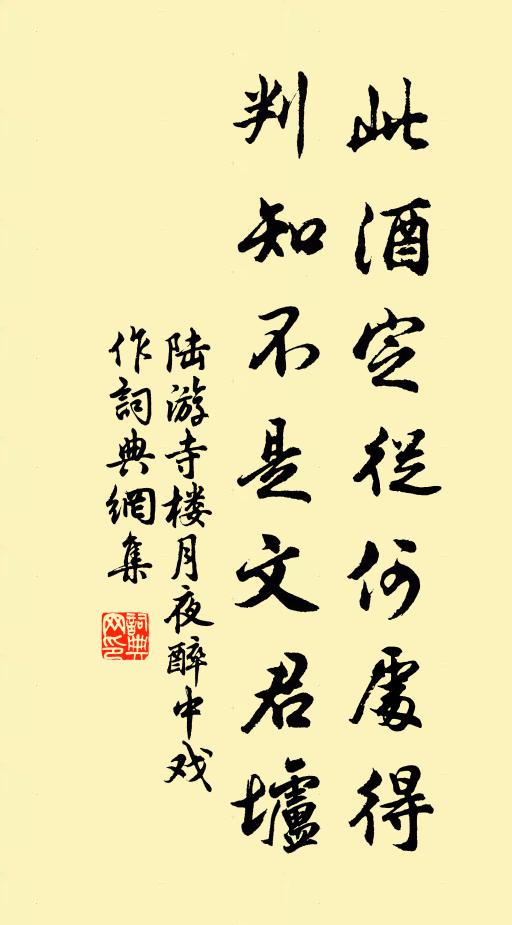 此酒定從何處得
判知不是文君壚
陆游寺楼月夜醉中戏
作詞典網集
詞典
网印